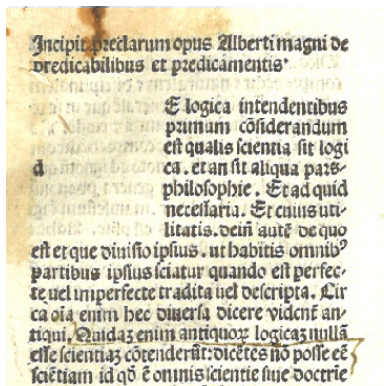 Incipit preclarum opus Alberti magni de
predicabilibus et predicamentis.
E logica intendentibus
primum cōsiderandum
est qualis scientia sit logi
d ca. et an sit aliqua pars
philosophie. Et ad quid
necessaria. Et cuius uti-
litatis. dein̄ autē de quo
est et que diuisio ipsius. ut habitis omnibꝰ
partibus ipsius sciatur quando est perfec-
te uel imperfecte tradita uel descripta. Cir
ca oīa enim hec diuersa dicere vident̄ an-
tiqui. Quidaʒ enim antiquoꝝ logicaʒ nullā
esse scientiaʒ cōtenderūt: dicētes nō posse eē
sciētiam id qd̄ ē omnis scientie siue doctrīe